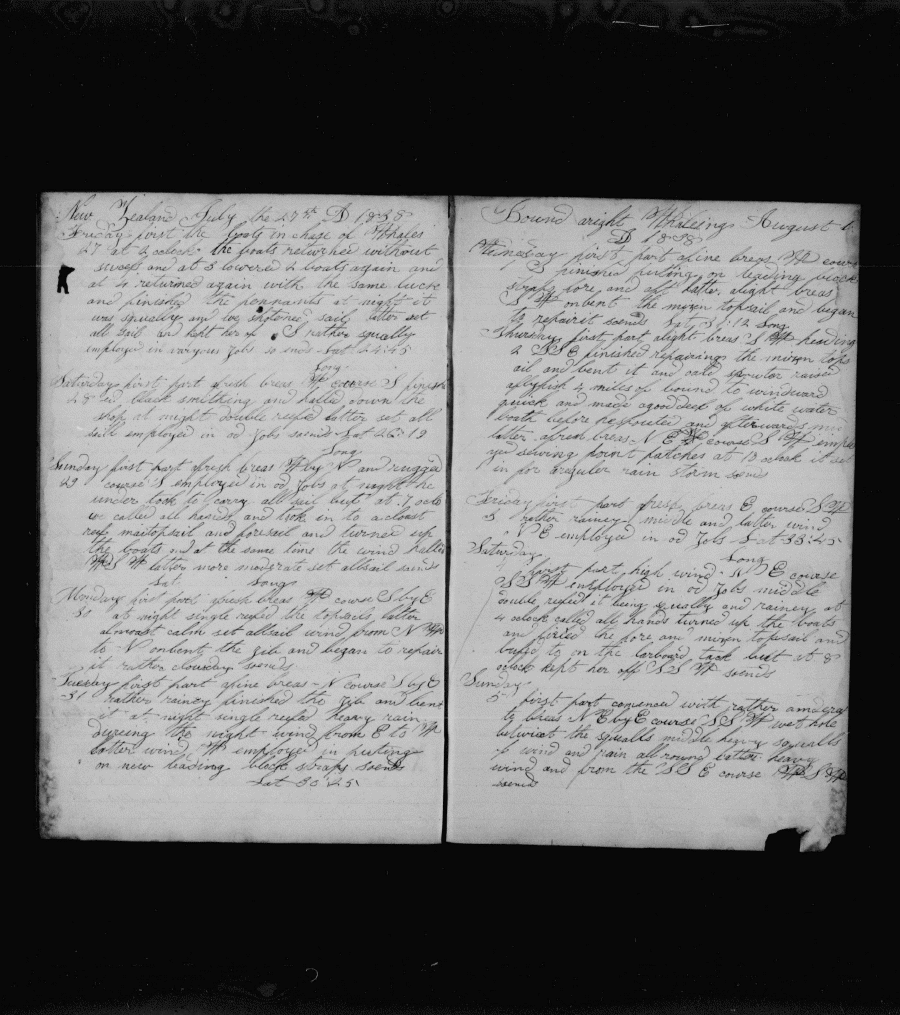 New Zealand July the 27th D 1838
Friday first the boats in chase of Whales
27 at 2 oclock the boats returned without
sucess and at 3 lowered 2 boats again and
at 4 returned again with the same luck
and finished the pennants at night it
was squally and we shortened sail latter set
all sail and kept her of S rather squally
employed in varyous Jobs so ends Lat 24:45
Long
Saturday first part afresh breas W course S finish
28 ed black smithing and halled down the
shop at night double reefed latter set all
sail employed in od Jobs soends Lat 26:19
Long
Sunday first part afresh breas W by N and rugged
29 course S employed in od Jobs at night he
under took to carry all sail but at 7 oclo
we called all hands and took in to a close
reef maitopsail and foresail and turned up
the boats and at the same time the wind halled
W S W latter more moderat set allsail sends
Lat Long
Monday first part afresh breas W course S by E
30 at night single reefed the topsails latter
almoast calm set allsail wind from N W
to N onbent the gib and began to repair
it rather cloudy soends
Tuesday first part afine breas N course S by E
31 rather rainey finished the Jib and bent
it at night single reefed heavy rain
dureing the night wind from E to W
latter wind W employed in puting
on new leading block straps soends
Lat 30:25
Bound aright Whaleings August 1
D 1838
Wednesday first part afine breas W cours
1 S finished puting on leading block
straps fore and aft latter alight breas
S W onbent the mizen topsail and began
to repairit soends Lat 31:12 Long
Thursday first part alight breas S W heading
2 S S E finished repairings the mizen tops
ail and bent it and raised
4 miles of bound to windward
quick and made agooddeel of white water
boath before hespouted and afterwards mid
latter afresh breas N E course S W emplo
yed sewing point patches at 10 oclock it set
in for aregular rain storm sends
Friday first part fresh breas E course S W
3 rather rainey middle and latter wind
N E employed in od Jobs Lat 33:45
Saturday Long
4 first part high wind N E course
S S W employed in od Jobs middle
double reefed it being squally and rainey at
4 oclock called all hands turned up the boats
and furled the fore and mizen topsail and
bused to on the larboard tack but at 8
oclock kept her off S S W soends
Sunday
5 first part comenced with rather
ty breas N E by E course S S W
betwixt the squalls middle heavy squalls
of wind and rain allround latter heavy
wind and from the S S E course W S W
soends